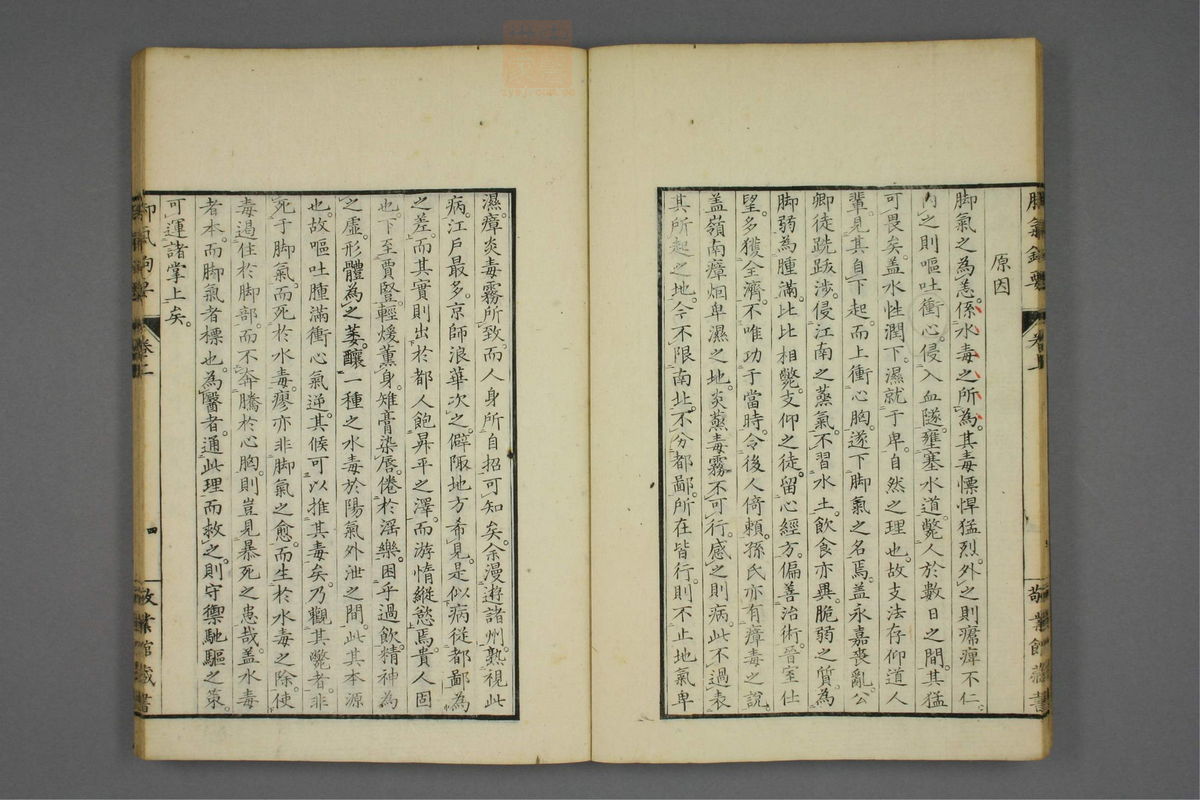 脚氣鉤要 卷上 敬業館藏書
原因
脚氣之為恙。係水毒之所為。其毒慓悍猛烈。外之則痛痺不仁。
内之則嘔吐衝心。侵入血隧。壅塞水道。斃人於數日之間。其猛
可畏矣。盖水性潤下。濕就于卑。自然之理也。故支法存仰道人
輩。見其自下起。而上衝心胸。遂下脚氣之名焉。盖永嘉喪亂。公
卿徒跣跋渉。侵江南之蒸氣。不習水土。飲食亦異。脆弱之質。為
脚弱為腫滿。比比相斃。支仰之徒。留心經方。偏善治術。晉室仕
望。多獲全濟。不唯功于當時。令後人倚賴。孫氏亦有瘴毒之說。
盖嶺南瘴烟卑濕之地。炎蒸毒霧。不可行。感之則病。此不過表
其所起之地。今不限南北。不分都鄙。所在皆行。則不止地氣卑
濕。瘴炎毒霧所致。而人身所自招可知矣。余漫遊諸州。熟視此
病。江戶最多。京師浪華次之。僻陬地方希見。是似病從都鄙為
之差。而其實則出於都人飽昇平之澤。而游惰縱慾焉。貴人固
也。下至賈豎。輕煖薰身。雉膏染唇。倦於淫樂。困乎過飲。精神為
之虛。形體為之萎。釀一種之水毒於陽氣外泄之間。此其本源
也。故嘔吐腫滿衝心氣逆。其候可以推其毒矣。乃觀其斃者。非
死于脚氣。而死於水毒。瘳亦非脚氣之愈。而生於水毒之除。使
毒遏住於脚部。而不奔騰於心胸。則豈見暴死之患哉。盖水毒
者本。而脚氣者標也。為醫者。通此理而救之。則守禦馳驅之策。
可運諸掌上矣。
脚氣鉤要 卷上 四 敬業館藏書